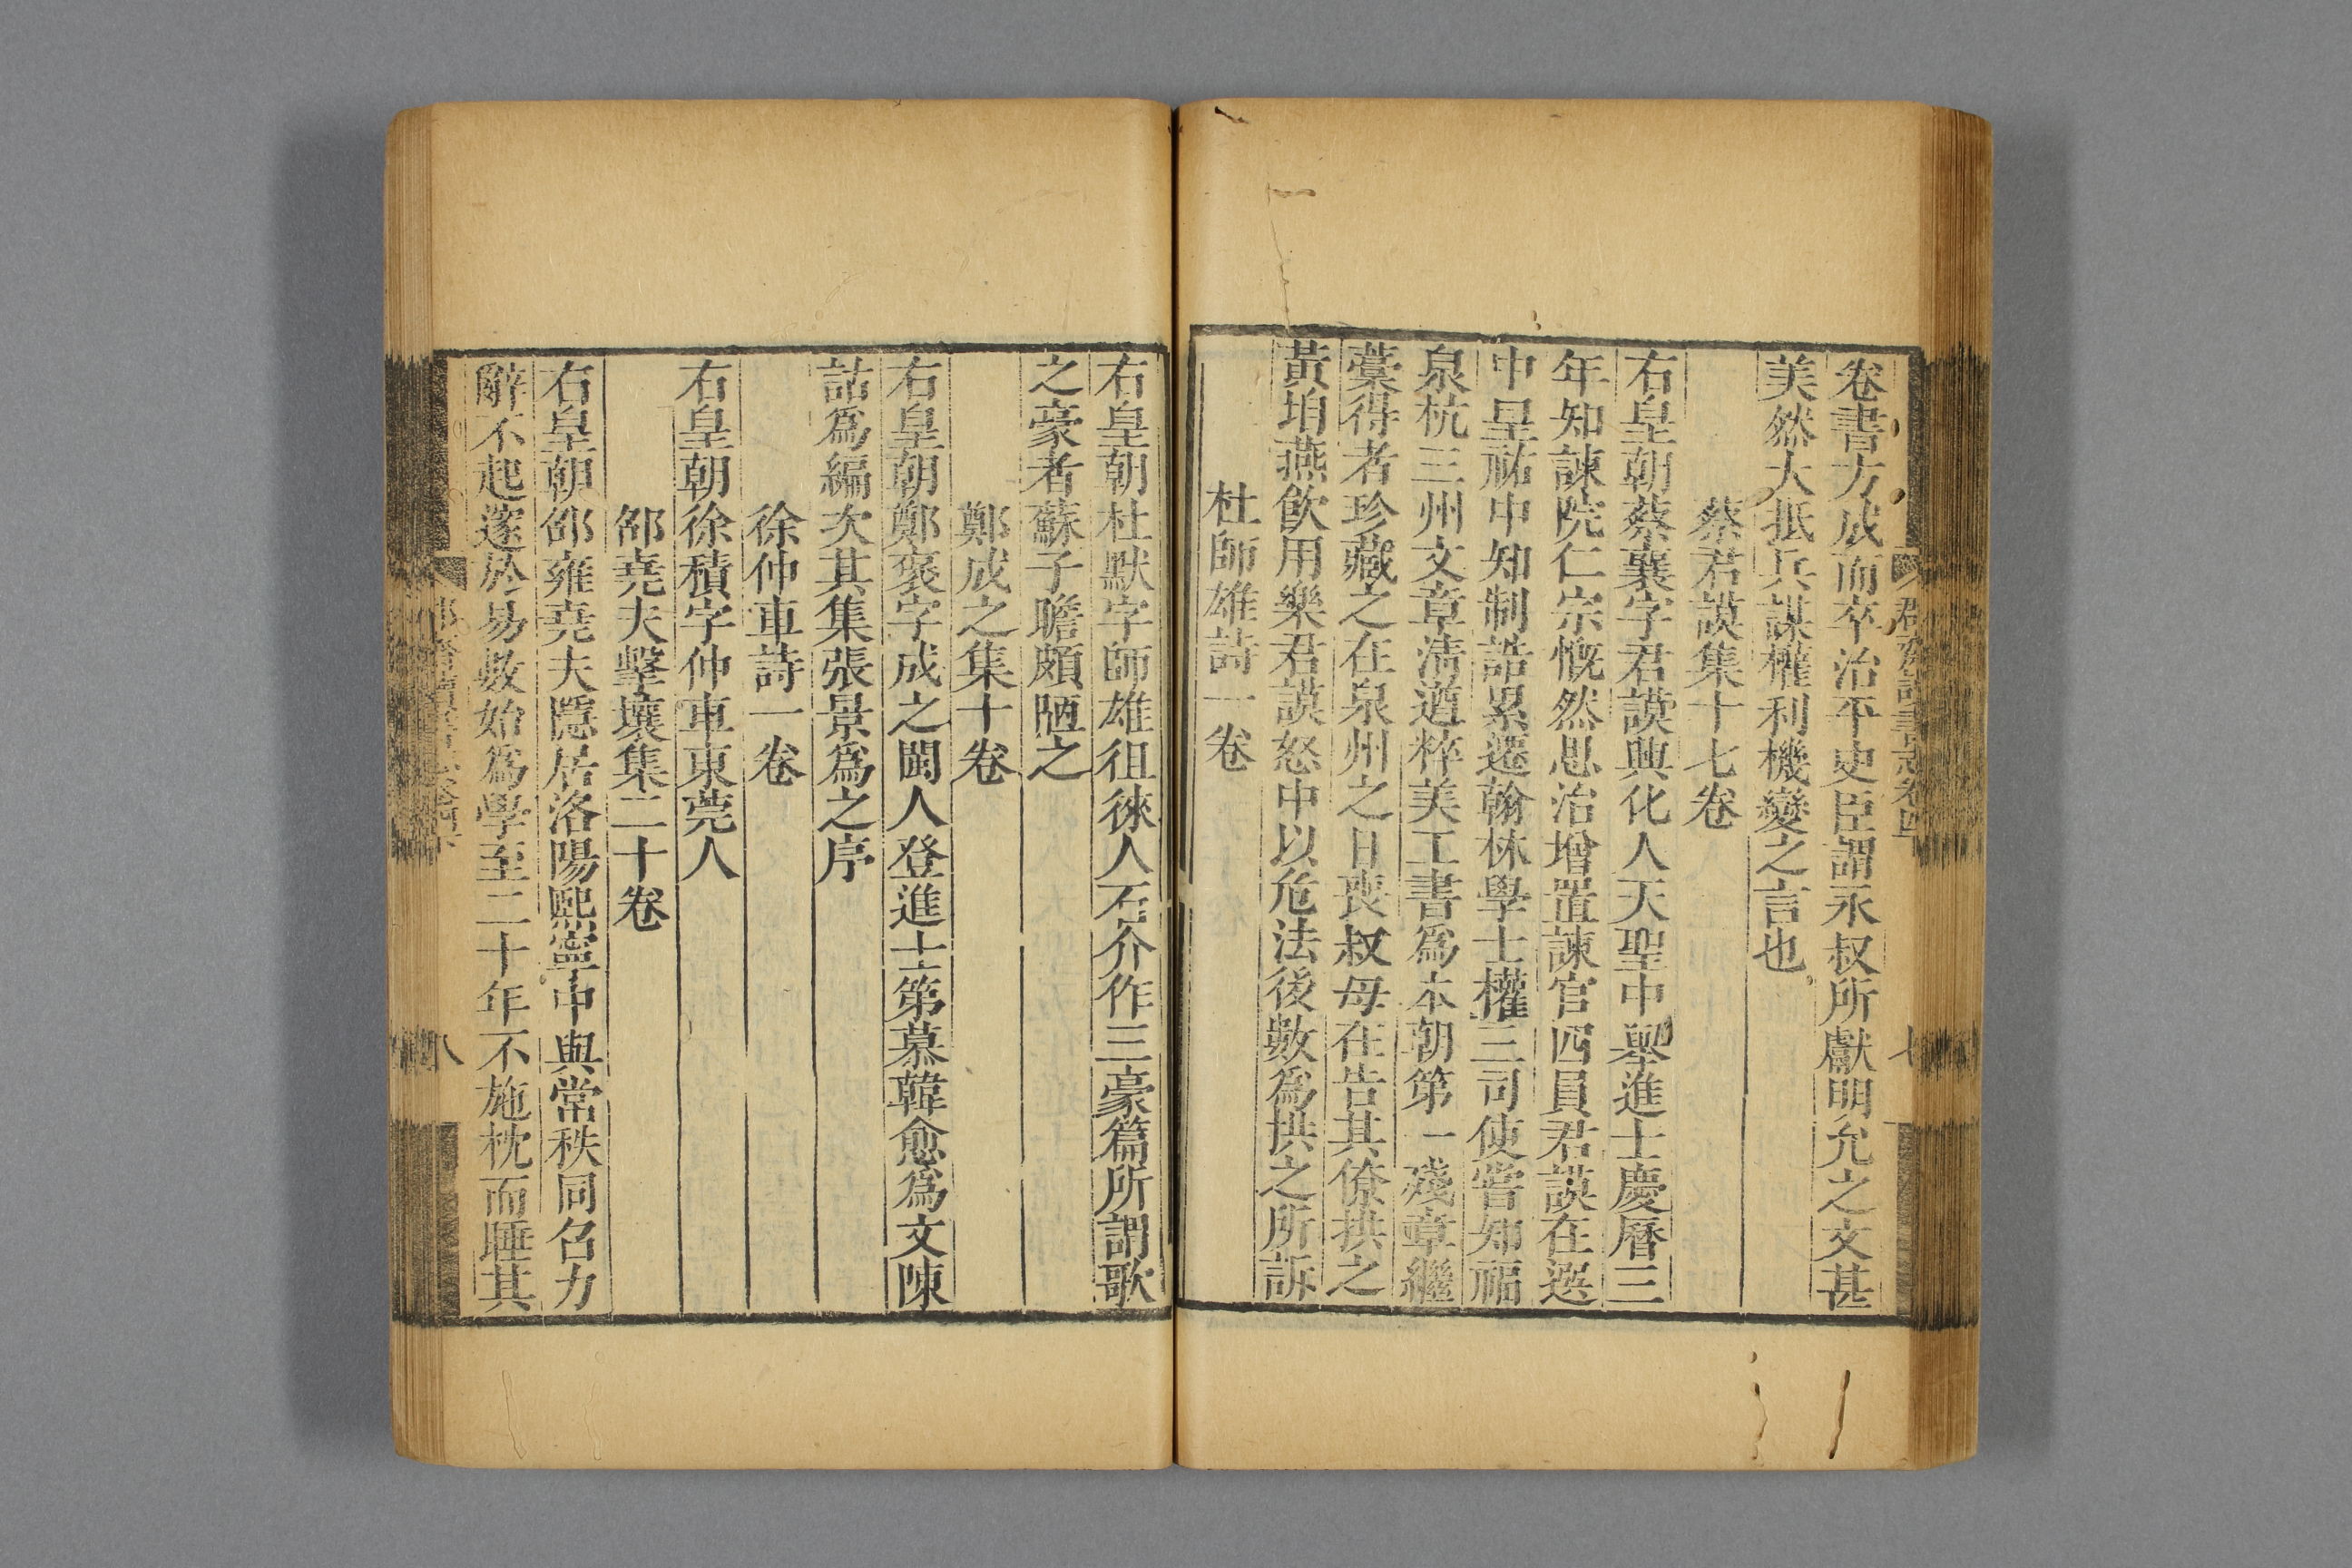 卷書方成而卒治平史臣謂永叔所獻明允之文甚
美然大抵兵謀權利機變之言也
蔡君謨集十七卷
右皇朝蔡襄字君謨興化人天聖中舉進士慶曆三
年知諫院仁宗慨然思治增置諫官四員君謨在選
中皇祐中知制誥累遷翰林學士權三司使嘗知福
泉杭三州文章淸遒粹美工書爲本朝第一殘章繼
藁得者珍藏之在泉州之日喪叔母在告其僚拱之
黃珀燕飲用樂君謨怒中以危法後數爲拱之所訴
杜師雄詩一卷
右皇朝杜默字師雄徂徠人石介作三豪篇所謂歌
之豪者蘇子瞻頗陋之
鄭成之集十卷
右皇朝鄭褒字成之閩人登進士第慕韓愈爲文陳
詁爲編次其集張景爲之序
徐仲車詩一卷
右皇朝徐積字仲車東莞人
邵堯夫擊壤集二十卷
右皇朝邵雍堯夫隱居洛陽熙寧中與常秩同召力
辭不起邃於易數始爲學至二十年不施枕而睡其
八